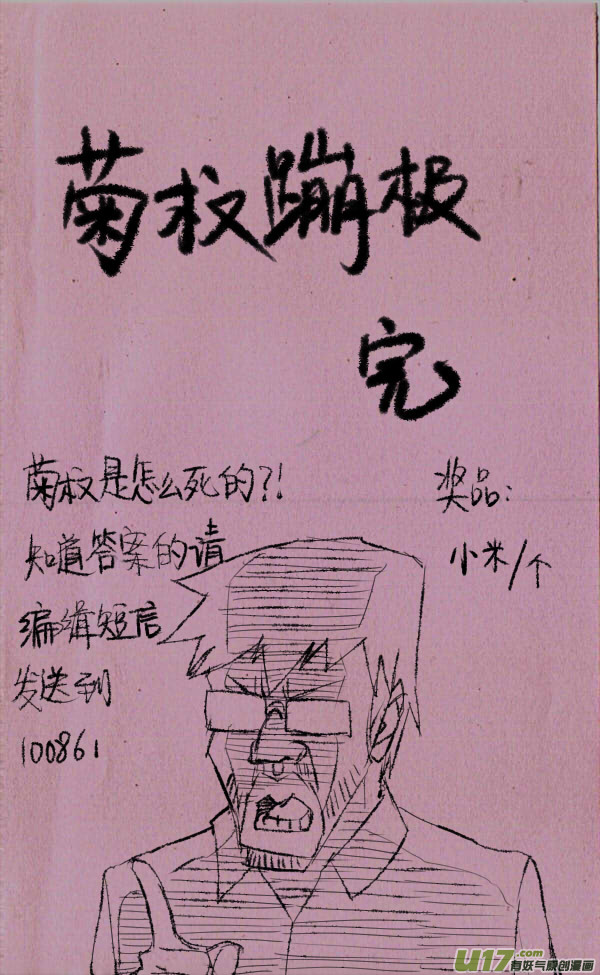 菊叔蹦极
完
菊叔是怎么死的?!
知道答案的请
编缉短信
发送到
100861
奖品:
小米1个
U17.COM
有妖气原创漫画